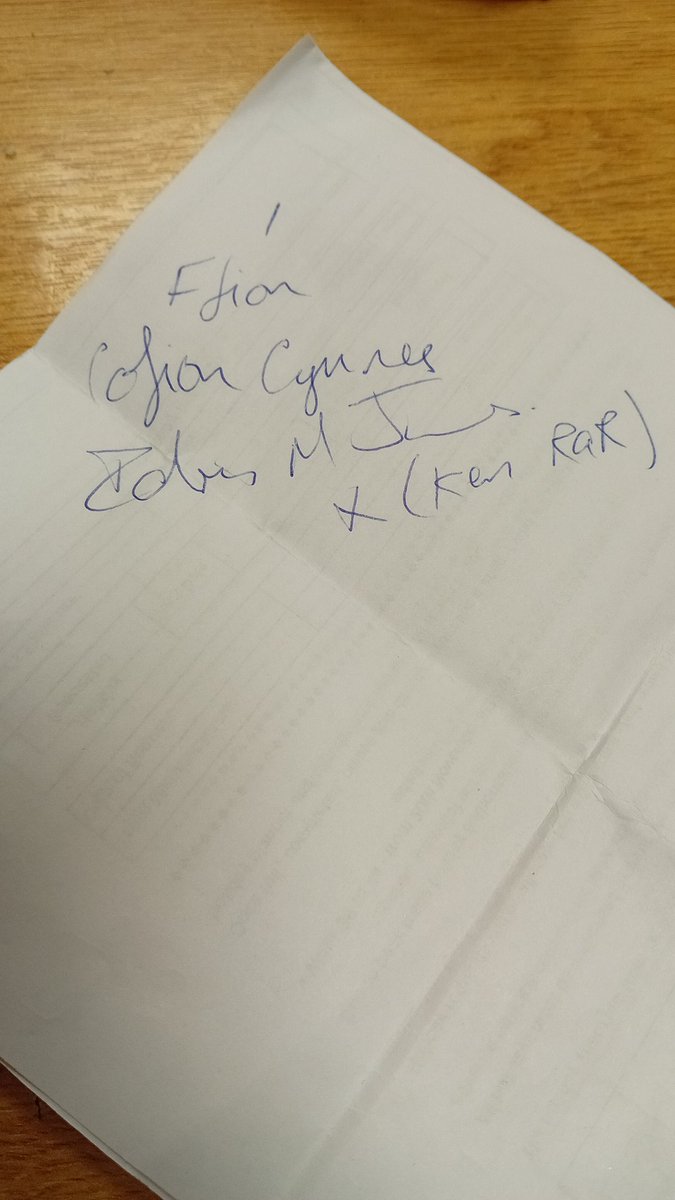 I
Ffion
Cofion Cynnes
Idris M Jones.
x (Ken RaR)